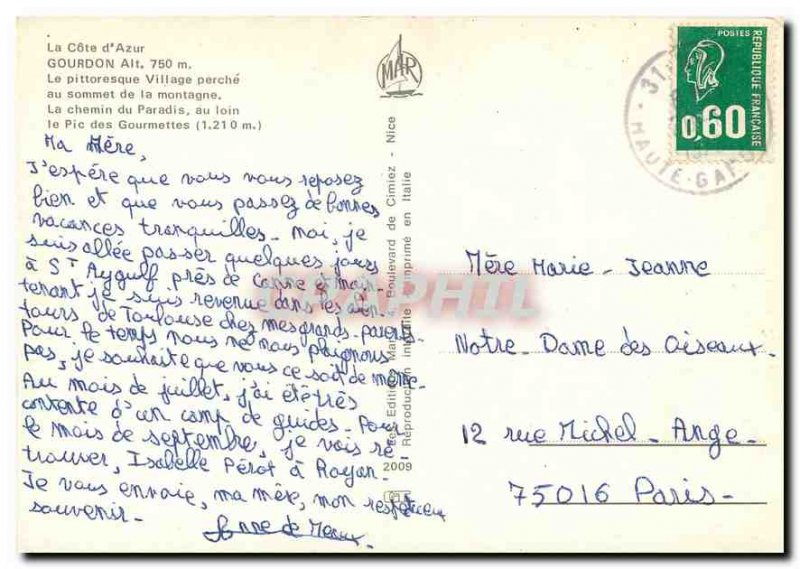 La Côte d'Azur
GOURDON Alt. 750 m.
Le pittoresque Village perché
au sommet de la montagne.
La chemin du Paradis, au loin
le Pic des Gourmettes (1.210 m.)
MAR
POSTES
REPUBLIQUE FRANÇAISE
0,60
31
HAUTE-GAR
Ma Mère,
J'espère que vous vous reposez
bien et que vous passez de bonnes
vacances tranquilles - moi, je
suis allée passer quelques jours
à St Aygulf près de Canne et main-
tenant je suis revenue dans les alen-
tours de Toulouse chez mes grands-parents
Pour le temps nous ne nous plaignons
pas, je souhaite que vous ce soit de même -
Au mois de juillet, j'ai été très
contente d'un camp de guides - Pour
le mois de septembre, je vais re-
trouver, Isabelle Pérot à Royan -
Je vous envoie, ma mère, mon respectueux
souvenir -
Anne de Meaux.
Boulevard de Cimiez - Nice
Reproduction Imprimé en Italie
2009
Mère Marie - Jeanne
Notre - Dame des Oiseaux -
12 rue Michel - Ange -
75016 Paris -